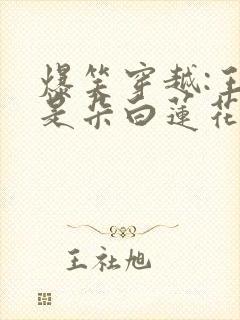 爆笑穿越:王
是朵白莲花
王社旭